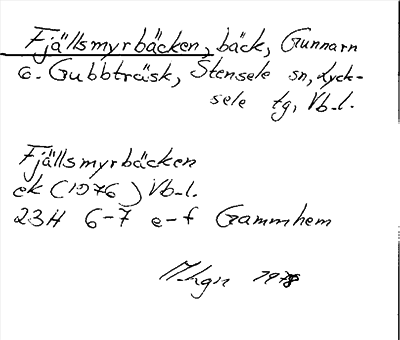 Fjällsmyrbäcken, bäck, Gunnarn
o. Gubbträsk, Stensele sn, Lyck-
sele tg, Vb-l.
Fjällsmyrbäcken
ek (1976) Vb-l.
23H 6-7 e-f Gammhem
1978